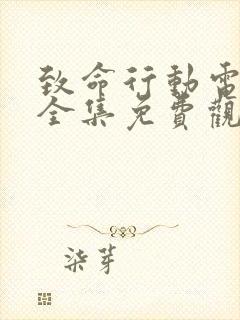 致命行動電
全集免費觀
柒芽